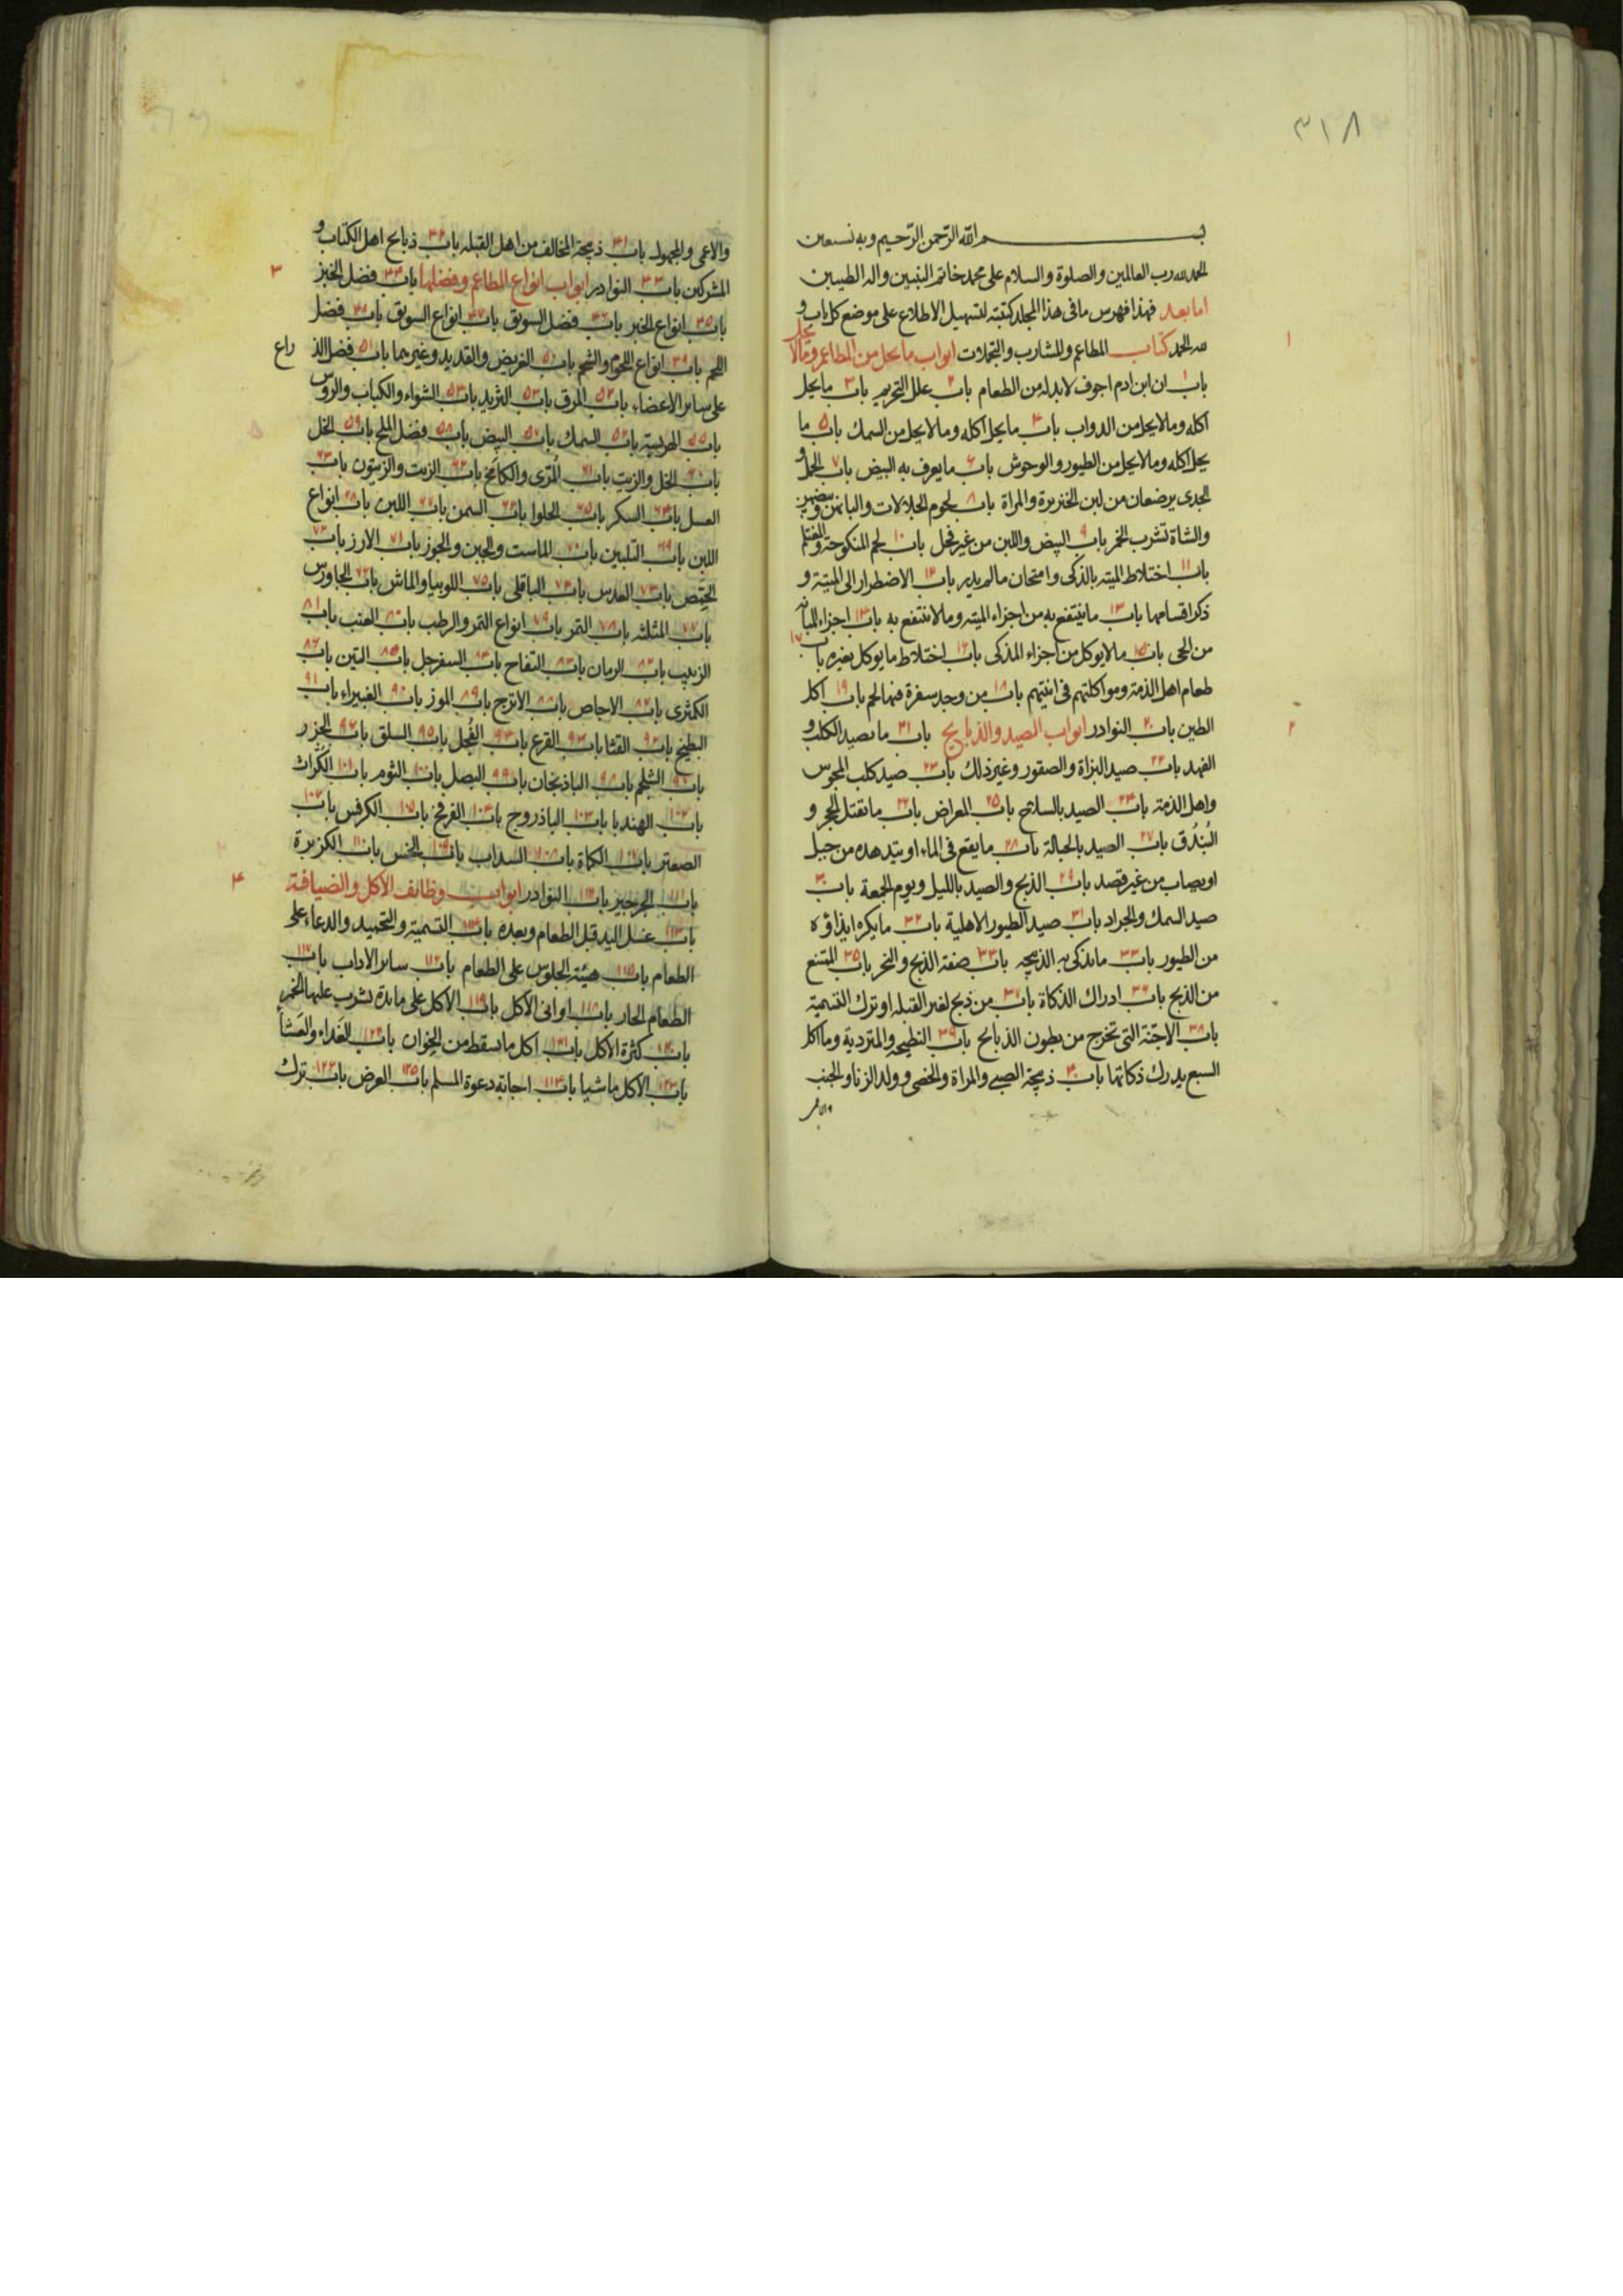 ٣١٨
بسم الله الرحمن الرحيم وبه نستعين
الحمد لله رب العالمين والصلوة والسلام على محمد خاتم النبيين واله الطيبين
اما بعد فهذا فهرس ما فى هذا المجلد كتبته لتسهيل الاطلاع على موضع كل باب و
لله الحمد كتاب المطاعم والمشارب والتجملات ابواب ما يحل من المطاعم وما لا يحل
١
باب ١ ان ابن ادم اجوف لا بد له من الطعام باب ٢ علل التحريم باب ٣ ما يحل
اكله وما لا يحل من الدواب باب ٤ ما يحل اكله وما لا يحل من السمك باب ٥ ما
يحل اكله وما لا يحل من الطيور والوحوش باب ٦ ما يعرف به البيض باب ٧ الحمل و
الجدى يرضعان من لبن الخنزيرة والمراة باب ٨ لحوم الجلالات والبانهن وبيضهن
والشاة تشرب الخمر باب ٩ البيض واللبن من غير فحل باب ١٠ لحم المنكوحة والمغتلم
باب ١١ اختلاط الميته بالذكى وامتحان ما لم يدر باب ١٢ الاضطرار الى الميتة و
ذكر اقسامها باب ١٣ ما ينتفع به من اجزاء الميته وما لا ينتفع به باب ١٤ اجزاء المبانه
من الحى باب ١٥ ما لا يوكل من اجزاء المذكى باب ١٦ اختلاط ما يوكل بغيره باب ١٧
طعام اهل الذمة ومواكلتهم فى انيتهم باب ١٨ من وجد سفرة فيها لحم باب ١٩ اكل
الطين باب ٢٠ النوادر ابواب الصيد والذبايح باب ٢١ ما تصيد الكلب و
٢
الفهد باب ٢٢ صيد البزاة والصقور وغير ذلك باب ٢٣ صيد كلب المجوس
واهل الذمة باب ٢٤ الصيد بالسلاح باب ٢٥ المعراض باب ٢٦ ما تقتل الحجر و
البُندُق باب ٢٧ الصيد بالحبالة باب ٢٨ ما يقع فى الماء او يتدهده من جبل
او يصاب من غير قصد باب ٢٩ الذبح والصيد بالليل ويوم الجمعة باب ٣٠
صيد السمك والجراد باب ٣١ صيد الطيور الاهلية باب ٣٢ ما يكره ايذاؤه
من الطيور باب ٣٣ ما تذكى به الذبيحه باب ٣٤ صفة الذبح والنحر باب ٣٥ الممتنع
من الذبح باب ٣٦ ادراك الذكاة باب ٣٧ من ذبح لغير القبلة او ترك التسمية
باب ٣٨ الاجنّة التى تخرج من بطون الذبايح باب ٣٩ النطيحه والمتردية وما اكل
السبع يدرك ذكاتها باب ٤٠ ذبيحة الصبى والمراة والخصى وولد الزنا والجنب
والاعمى
والاعمى والمجهول باب ٤١ ذبيحة المخالف من اهل القبله باب ٤٢ ذبايح اهل الكتاب و
المشركين باب ٤٣ النوادر ابواب انواع المطاعم وفضلها باب ٤٤ فضل الخبز
٣
باب ٤٥ انواع الخبز باب ٤٦ فضل السويق باب ٤٧ انواع السويق باب ٤٨ فضل
اللحم باب ٤٩ انواع اللحوم والشحم باب ٥٠ الغريض والقديد وغيرهما باب ٥١ فضل الذ
راع
على ساير الاعضاء باب ٥٢ المرق باب ٥٣ الثريد باب ٥٤ الشواء والكباب والروس
باب ٥٥ الهريسة باب ٥٦ السمك باب ٥٧ البيض باب ٥٨ فضل الملح باب ٥٩ الخل
باب ٦٠ الخل والزيت باب ٦١ المُرّى والكامَخ باب ٦٢ الزيت والزيتون باب ٦٣
العسل باب ٦٤ السكر باب ٦٥ الحلوا باب ٦٦ السمن باب ٦٧ اللبن باب ٦٨ انواع
اللبن باب ٦٩ التلبين باب ٧٠ الماست والجبن والجوز باب ٧١ الارز باب ٧٢
الحِمّص باب ٧٣ العدس باب ٧٤ الباقلى باب ٧٥ اللوبيا والماش باب ٧٦ الجاورس
باب ٧٧ المثلثه باب ٧٨ التمر باب ٧٩ انواع التمر والرطب باب ٨٠ العنب باب ٨١
الزبيب باب ٨٢ الرمان باب ٨٣ التفاح باب ٨٤ السفرجل باب ٨٥ التين باب ٨٦
الكمثرى باب ٨٧ الاجاص باب ٨٨ الاترج باب ٨٩ الموز باب ٩٠ الغبيراء باب ٩١
البطيخ باب ٩٢ القثا باب ٩٣ القرع باب ٩٤ الفُجل باب ٩٥ السلق باب ٩٦ الجزر
باب ٩٧ الشلجم باب ٩٨ الباذنجان باب ٩٩ البصل باب ١٠٠ الثوم باب ١٠١ الكُرّاث
باب ١٠٢ الهندبا باب ١٠٣ الباذروج باب ١٠٤ الفرفخ باب ١٠٥ الكرفس باب ١٠٦
الصعتر باب ١٠٧ الكماة باب ١٠٨ السداب باب ١٠٩ الخس باب ١١٠ الكزبرة
باب ١١١ الجرجير باب ١١٢ النوادر ابواب وظائف الاكل والضيافة
٤
باب ١١٣ غسل اليد قبل الطعام وبعده باب ١١٤ التسمية والتحميد والدعاء على
الطعام باب ١١٥ هيئة الجلوس على الطعام باب ١١٦ ساير الاداب باب ١١٧
الطعام الحار باب ١١٨ اوانى الاكل باب ١١٩ الاكل على مايدة يشرب عليها الخمر
باب ١٢٠ كثرة الاكل باب ١٢١ اكل ما سقط من الخِوان باب ١٢٢ الغَداء والعَشا
باب الاكل ماشيا باب اجابة دعوة المسلم باب ١٢٥ العرض باب ترك